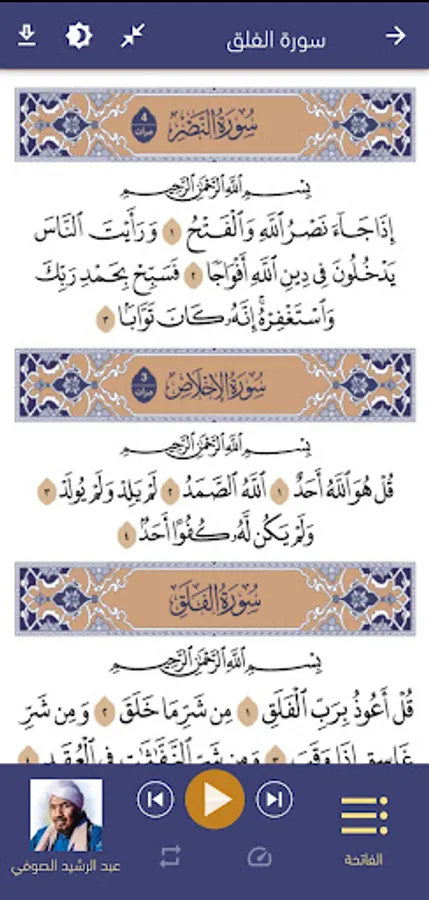 سورة الفلق
سُورَةُ النَّصْرِ
4
مرات
بِسْمِ اللَّهِ الرَّحْمَٰنِ الرَّحِيمِ
إِذَا جَاءَ نَصْرُ اللَّهِ وَالْفَتْحُ ١ وَرَأَيْتَ النَّاسَ
يَدْخُلُونَ فِي دِينِ اللَّهِ أَفْوَاجًا ٢ فَسَبِّحْ بِحَمْدِ رَبِّكَ
وَاسْتَغْفِرْهُ ۚ إِنَّهُ كَانَ تَوَّابًا ٣
سُورَةُ الْإِخْلَاصِ
3
مرات
بِسْمِ اللَّهِ الرَّحْمَٰنِ الرَّحِيمِ
قُلْ هُوَ اللَّهُ أَحَدٌ ١ اللَّهُ الصَّمَدُ ٢ لَمْ يَلِدْ وَلَمْ يُولَدْ ٣
وَلَمْ يَكُن لَّهُ كُفُوًا أَحَدٌ ٤
سُورَةُ الْفَلَقِ
بِسْمِ اللَّهِ الرَّحْمَٰنِ الرَّحِيمِ
قُلْ أَعُوذُ بِرَبِّ الْفَلَقِ ١ مِن شَرِّ مَا خَلَقَ ٢ وَمِن شَرِّ
غَاسِقٍ إِذَا وَقَبَ ٣ وَمِن شَرِّ النَّفَّاثَاتِ فِي الْعُقَدِ ٤
عبد الرشيد الصوفي
الفاتحة